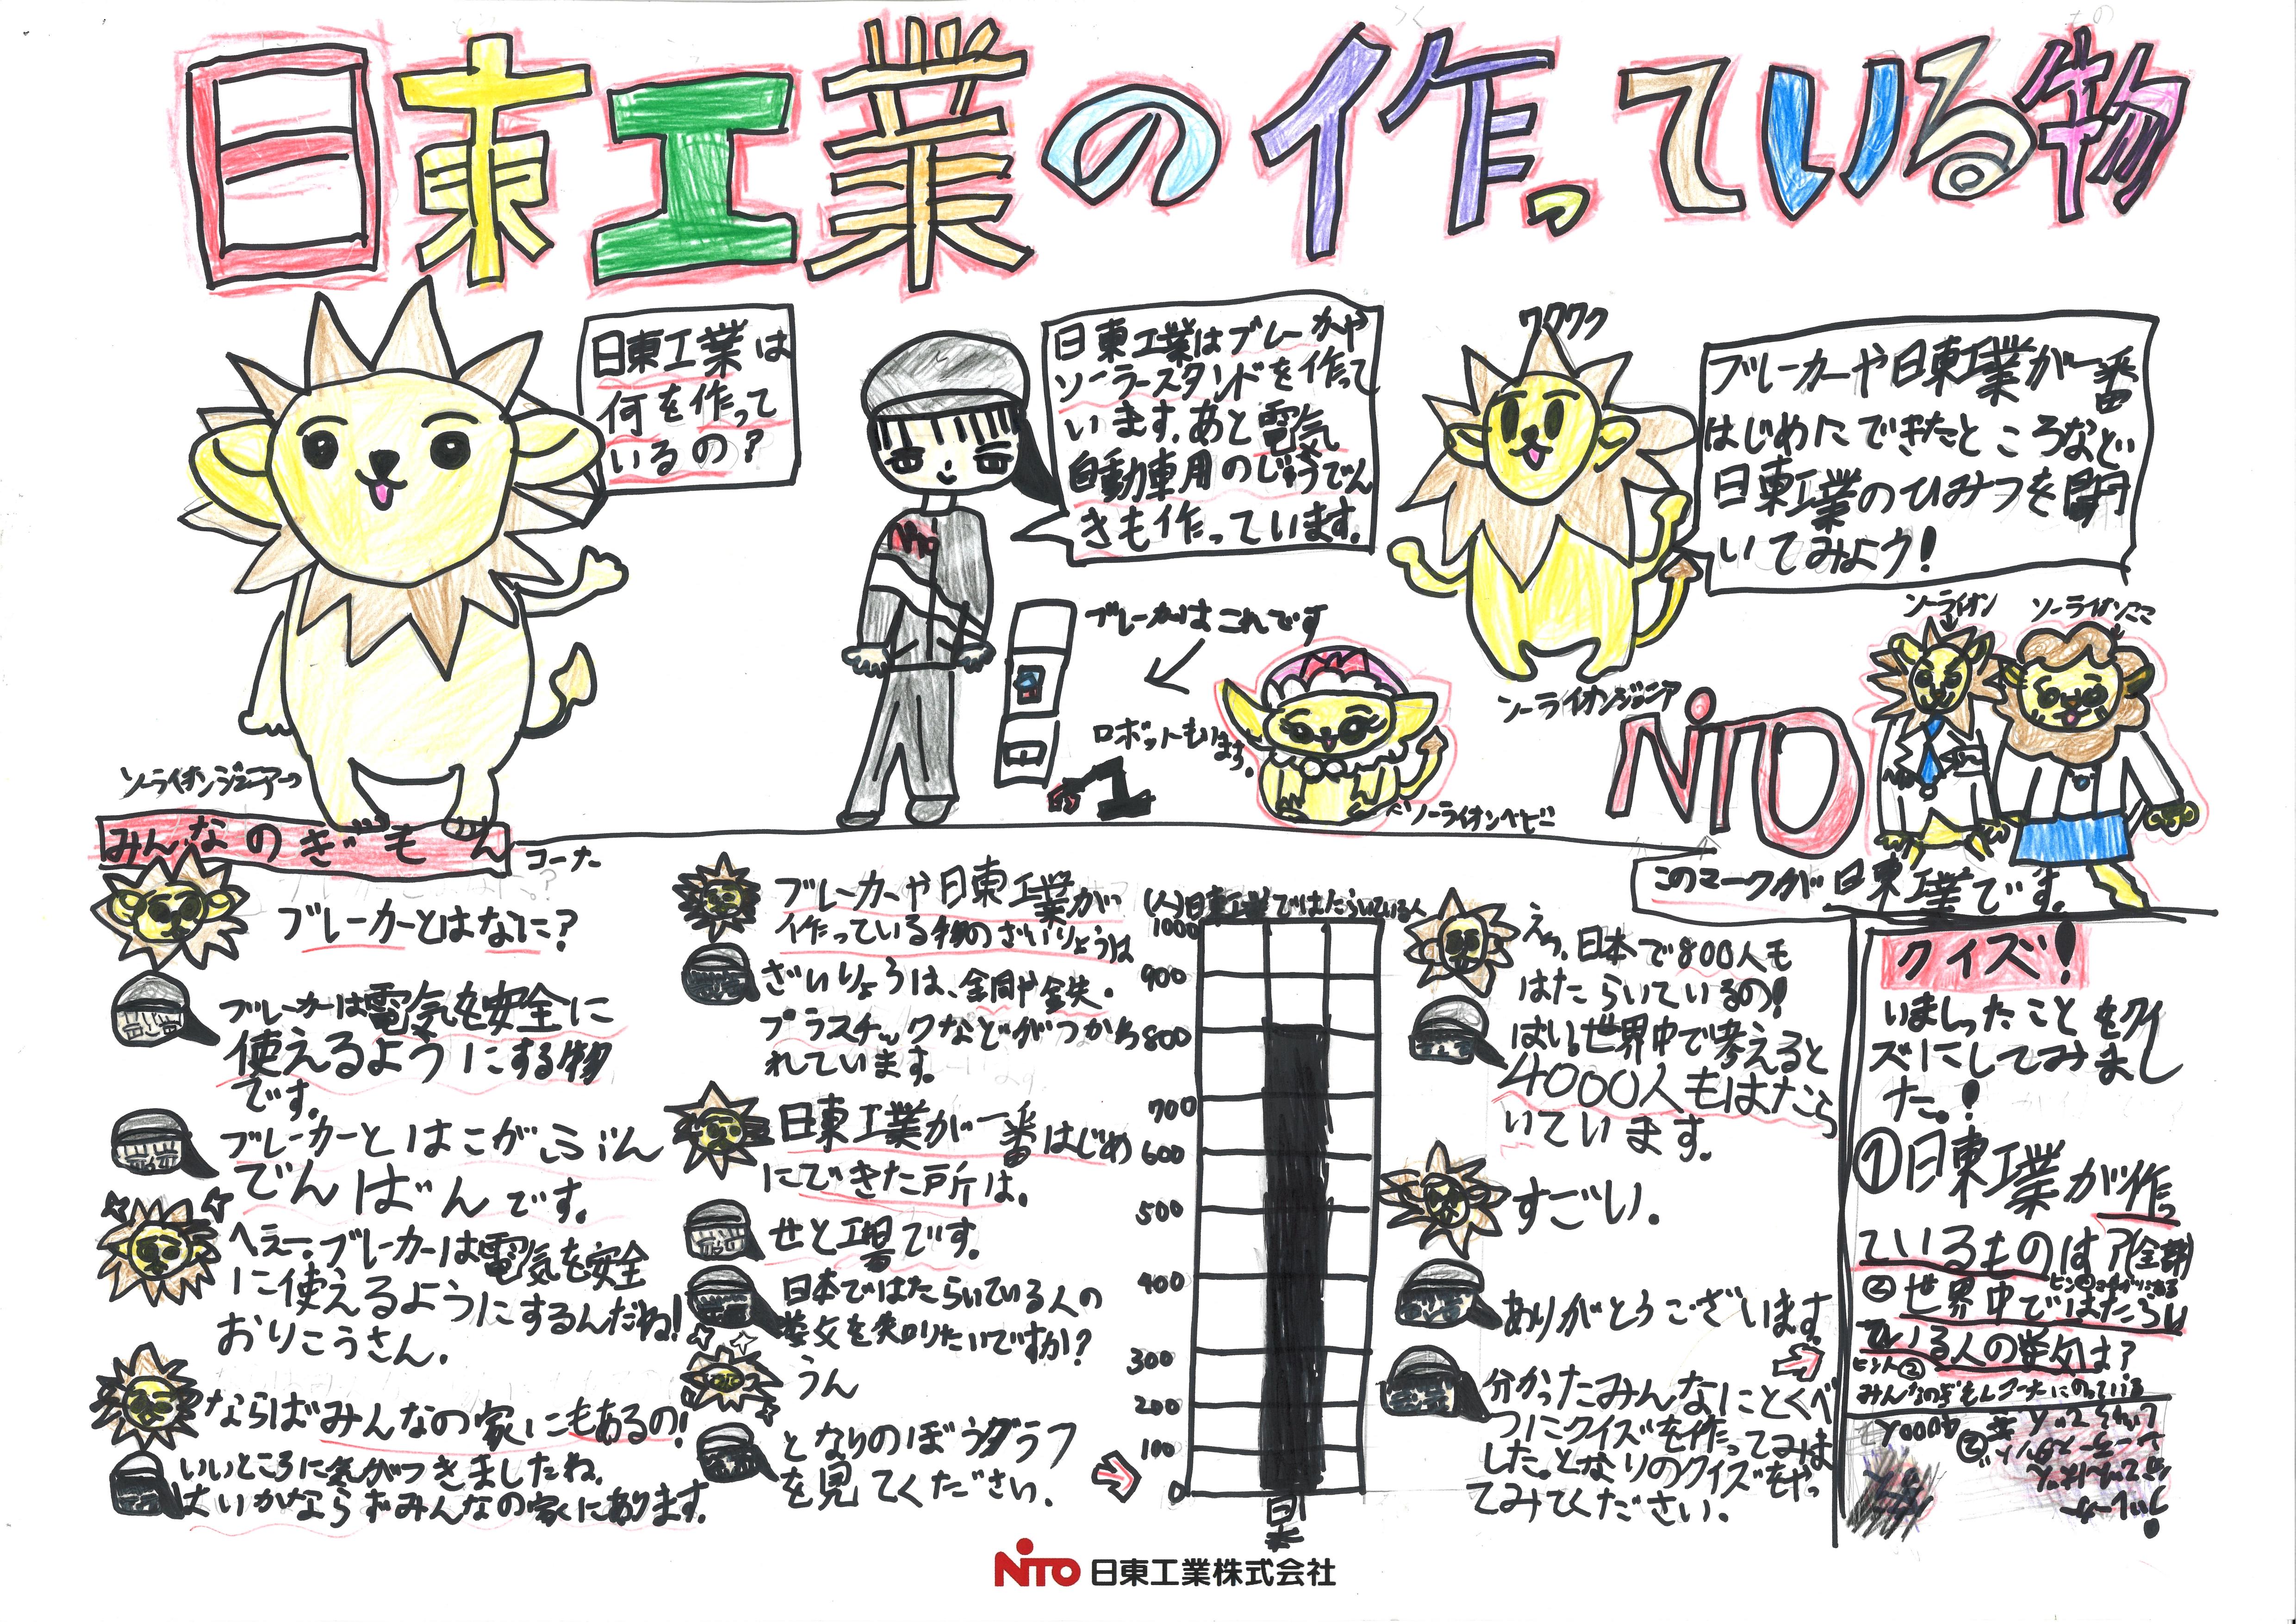 日東工業の作っている物
日東工業は
何を作って
いるの?
日東工業はブレーカや
ソーラースタンドを作って
います。あと電気
自動車用のじゅうでん
きも作っています。
ワクワク
ブレーカーや日東工業が一番
はじめにできたところなど
日東工業のひみつを聞
いてみよう!
ブレーカはこれです
ロボットもいます。
ソーライオンジュニア
ソーライオンジュニア
ソーライオンベビー
ソーライオン
ソーライオンここ
NiTO
このマークが日東工業です。
みんなのぎもん
コーナ
ブレーカーとはなに?
ブレーカーは電気を安全に
使えるようにする物
です。
ブレーカーとはこがぶぶん
でんばんです。
へえー。ブレーカーは電気を安全
に使えるようにするんだね!
おりこうさん。
ならばみんなの家にもあるの!
いいところに気がつきましたね。
はいかならずみんなの家にあります。
ブレーカーや日東工業が
作っている物のざいりょうは
ざいりょうは、金同や金失。
プラスチックなどがつかわ
れています。
日東工業が一番はじめ
にできた所は。
せと工場です。
日本ではたらいている人の
数を知りたいですか?
うん
となりのぼうグラフ
を見てください。
(人)日東工業ではたらいている人
1000
900
800
700
600
500
400
300
200
100
0
日本
えっ、日本で800人も
はたらいているの!
はい。世界中で考えると
4000人もはたら
いています。
すごい。
ありがとうございます
分かったみんなにとくべ
つにクイズを作ってみま
した。となりのクイズをやっ
てみてください。
クイズ!
いましったことをクイ
ズにしてみまし
た。!
①日東工業が作っ
ているものは?(全部)
②世界中ではたらい
ている人の数は?
ヒント②
みんなのぎもんコーナにのっている
NiTO 日東工業株式会社